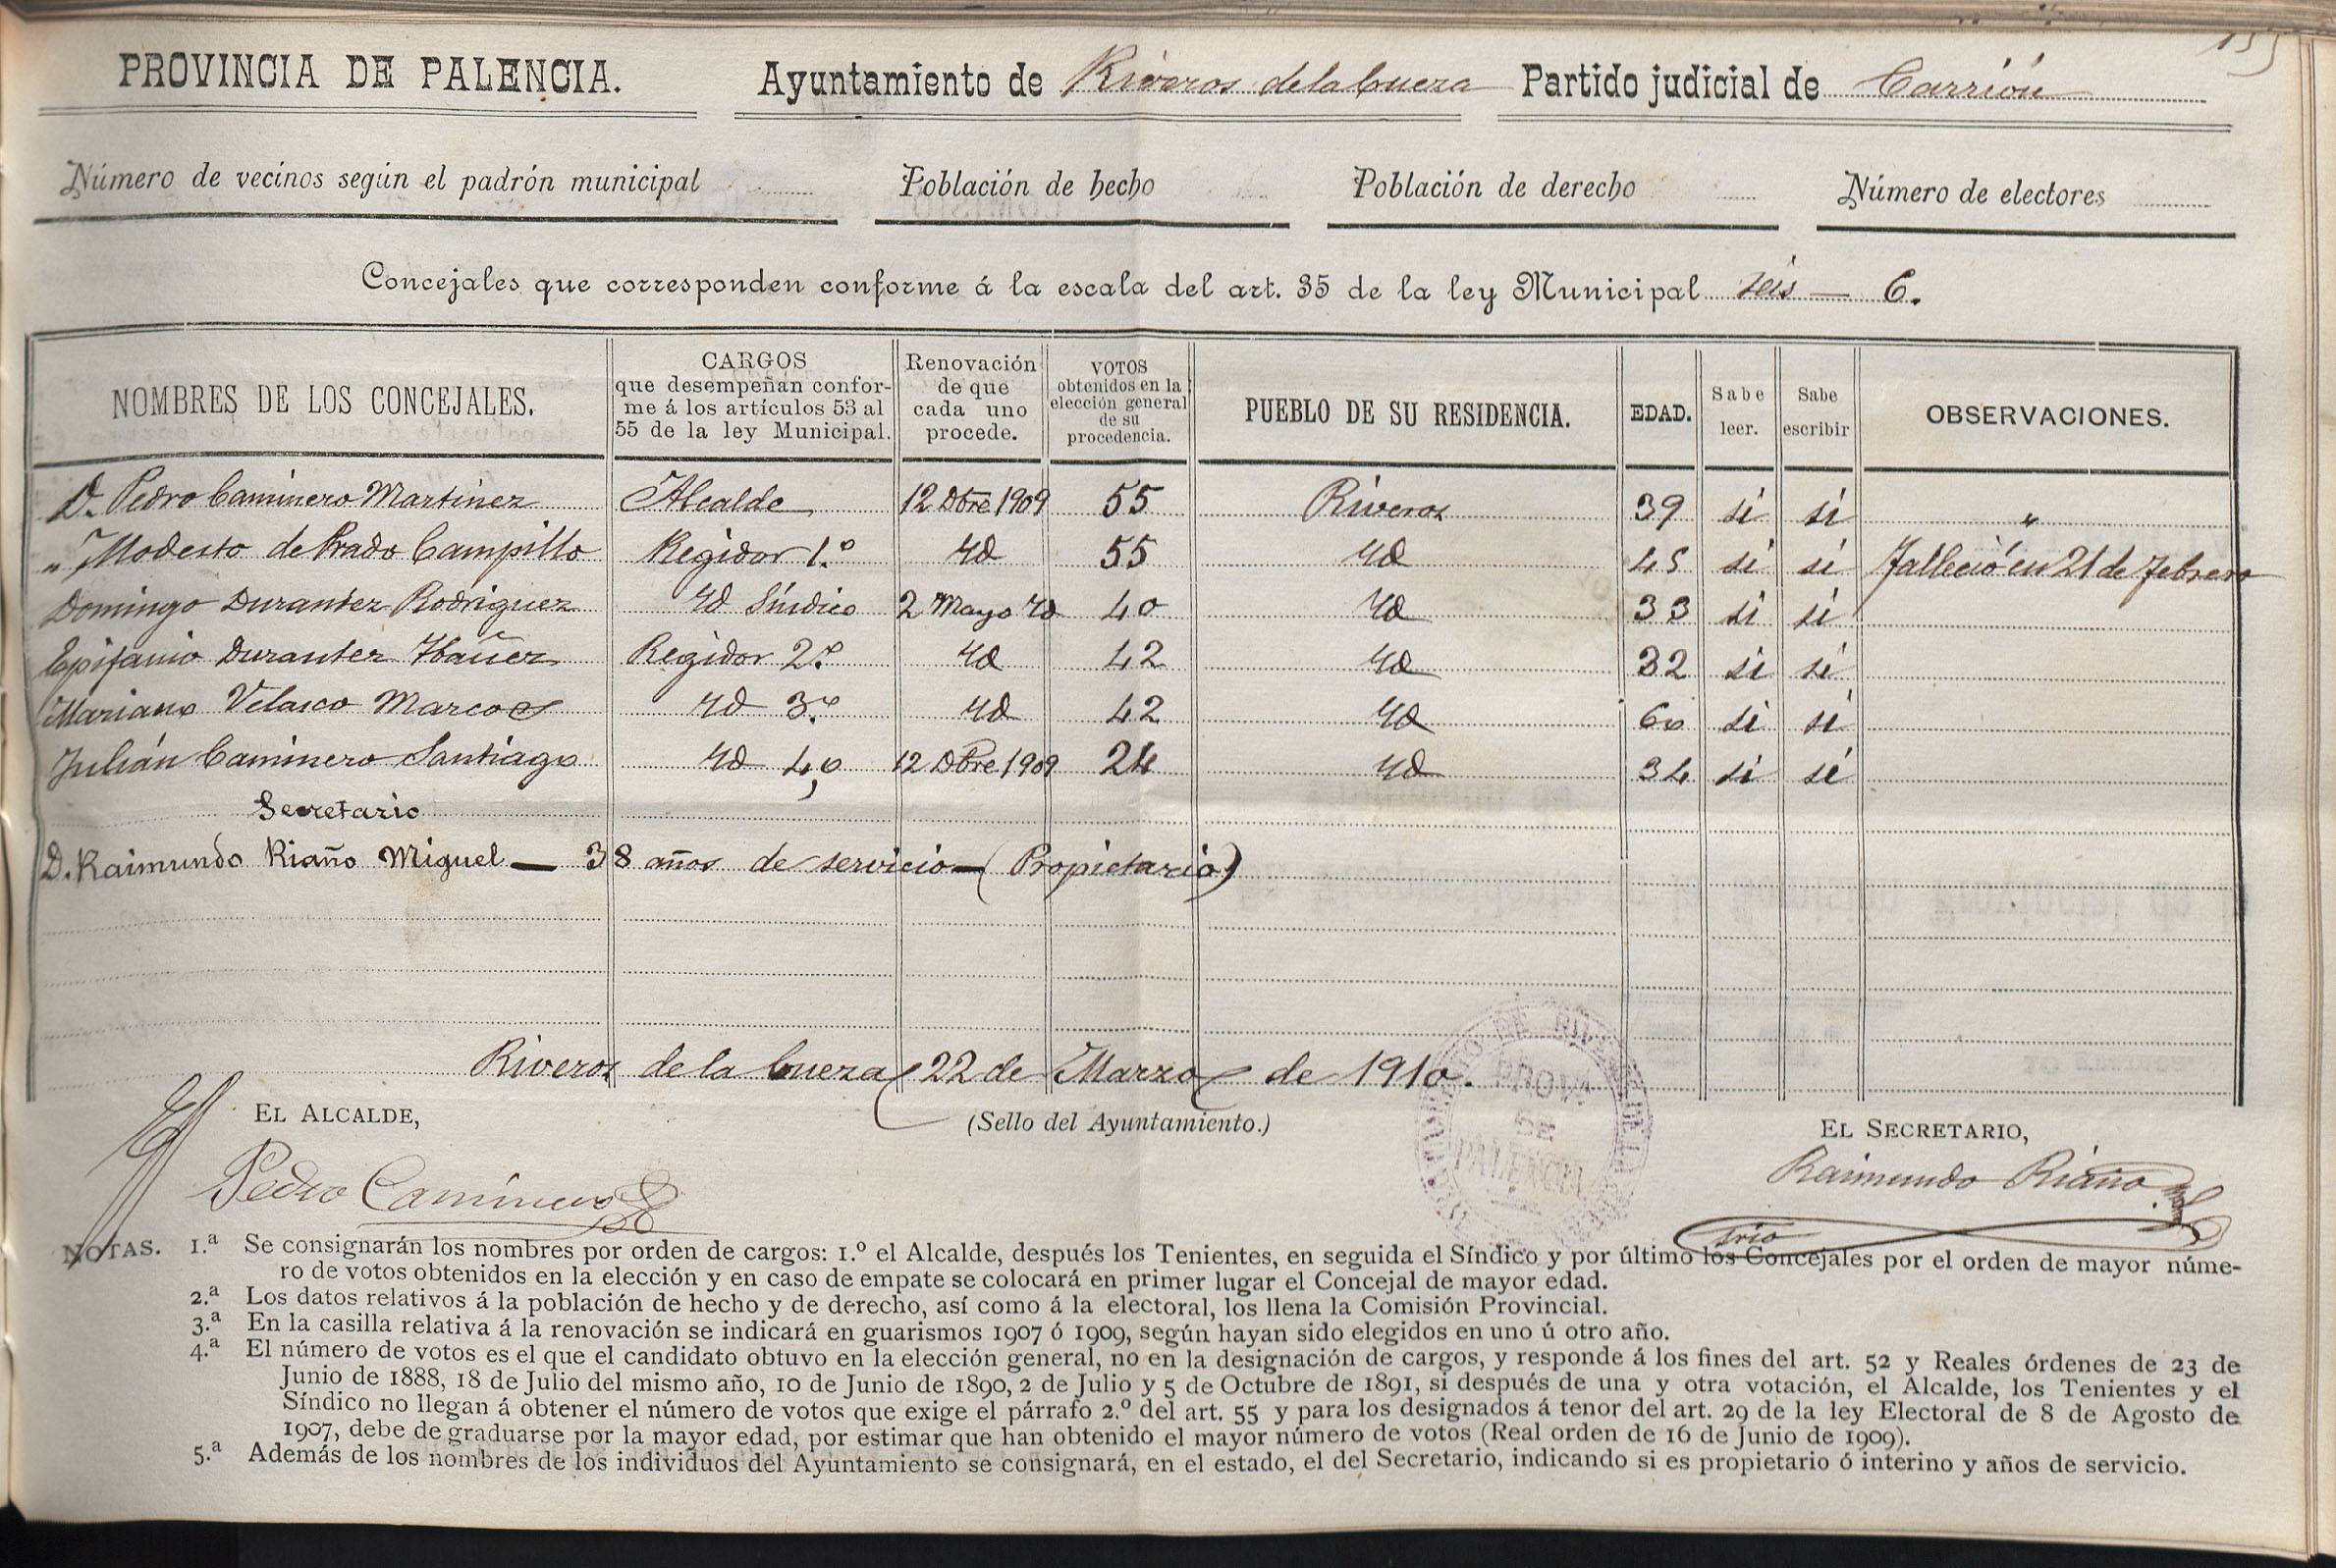 155
PROVINCIA DE PALENCIA. Ayuntamiento de Riveros de la Cueza Partido judicial de Carrión
Número de vecinos según el padrón municipal Población de hecho Población de derecho Número de electores
Concejales que corresponden conforme á la escala del art. 35 de la ley Municipal seis — 6.
NOMBRES DE LOS CONCEJALES. CARGOS que desempeñan conforme á los artículos 53 al 55 de la ley Municipal. Renovación de que cada uno procede. VOTOS obtenidos en la elección general de su procedencia. PUEBLO DE SU RESIDENCIA. EDAD. Sabe leer. Sabe escribir OBSERVACIONES.
D. Pedro Caminero Martinez Alcalde 12 Dbre 1909 55 Riveros 39 si si "
" Modesto de Prado Campillo Regidor 1.º Yd 55 Yd 45 si si Falleció en 21 de Febrero
Domingo Durantez Rodriguez Yd Síndico 2 Mayo Yd 40 Yd 33 si si
Epifanio Durantez Ybañez Regidor 2.º Yd 42 Yd 32 si si
Mariano Velasco Marcos Yd 3.º Yd 42 Yd 60 si si
Julián Caminero Santiago Yd 4º 12 Dbre 1909 24 Yd 34 si si
Secretario
D. Raimundo Riaño Miguel — 38 años de servicio — (Propietario)
Riveros de la Cueza 22 de Marzo de 1910.
EL ALCALDE, (Sello del Ayuntamiento.) EL SECRETARIO,
Pedro Caminero Raimundo Riaño
srio
PROVª DE PALENCIA
NOTAS. 1.ª Se consignarán los nombres por orden de cargos: 1.º el Alcalde, después los Tenientes, en seguida el Síndico y por último los Concejales por el orden de mayor núme-
ro de votos obtenidos en la elección y en caso de empate se colocará en primer lugar el Concejal de mayor edad.
2.ª Los datos relativos á la población de hecho y de derecho, así como á la electoral, los llena la Comisión Provincial.
3.ª En la casilla relativa á la renovación se indicará en guarismos 1907 ó 1909, según hayan sido elegidos en uno ú otro año.
4.ª El número de votos es el que el candidato obtuvo en la elección general, no en la designación de cargos, y responde á los fines del art. 52 y Reales órdenes de 23 de
Junio de 1888, 18 de Julio del mismo año, 10 de Junio de 1890, 2 de Julio y 5 de Octubre de 1891, si después de una y otra votación, el Alcalde, los Tenientes y el
Síndico no llegan á obtener el número de votos que exige el párrafo 2.º del art. 55 y para los designados á tenor del art. 29 de la ley Electoral de 8 de Agosto de
1907, debe de graduarse por la mayor edad, por estimar que han obtenido el mayor número de votos (Real orden de 16 de Junio de 1909).
5.ª Además de los nombres de los individuos del Ayuntamiento se consignará, en el estado, el del Secretario, indicando si es propietario ó interino y años de servicio.